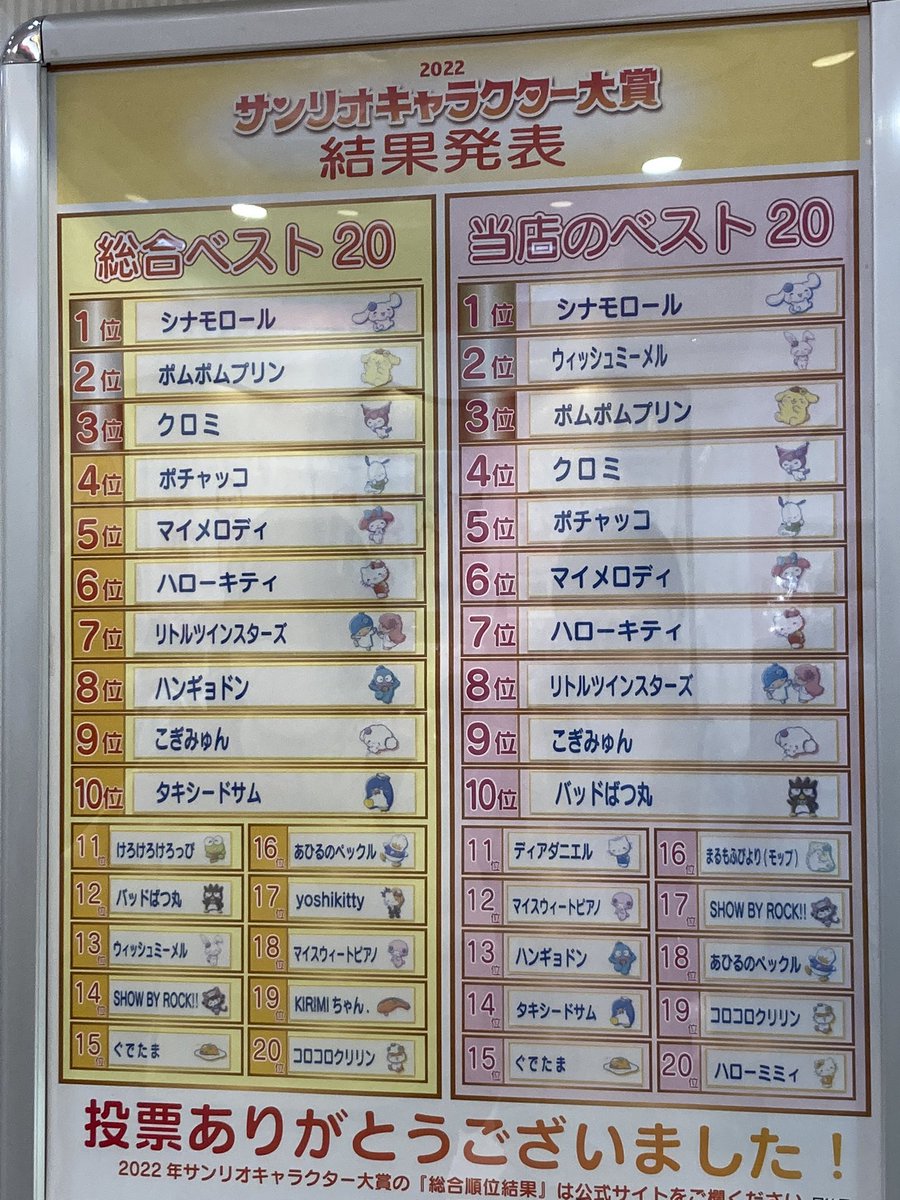 2022
サンリオキャラクター大賞
結果発表
総合ベスト20
1位 シナモロール
2位 ポムポムプリン
3位 クロミ
4位 ポチャッコ
5位 マイメロディ
6位 ハローキティ
7位 リトルツインスターズ
8位 ハンギョドン
9位 こぎみゅん
10位 タキシードサム
11位 けろけろけろっぴ
12位 バッドばつ丸
13位 ウィッシュミーメル
14位 SHOW BY ROCK!!
15位 ぐでたま
16位 あひるのペックル
17位 yoshikitty
18位 マイスウィートピアノ
19位 KIRIMIちゃん.
20位 コロコロクリリン
当店のベスト20
1位 シナモロール
2位 ウィッシュミーメル
3位 ポムポムプリン
4位 クロミ
5位 ポチャッコ
6位 マイメロディ
7位 ハローキティ
8位 リトルツインスターズ
9位 こぎみゅん
10位 バッドばつ丸
11位 ディアダニエル
12位 マイスウィートピアノ
13位 ハンギョドン
14位 タキシードサム
15位 ぐでたま
16位 まるもふびより(モップ)
17位 SHOW BY ROCK!!
18位 あひるのペックル
19位 コロコロクリリン
20位 ハローミミィ
投票ありがとうございました!
2022年サンリオキャラクター大賞の『総合順位結果』は公式サイトをご欄ください